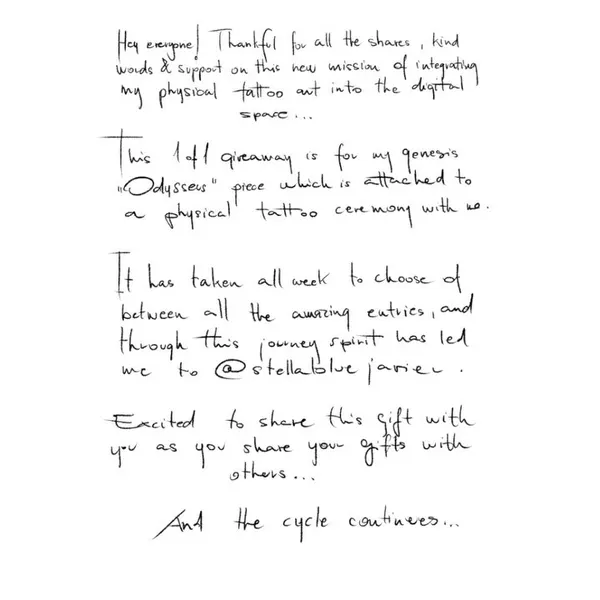 Hey everyone! Thankful for all the shares, kind
words & support on this new mission of integrating
my physical tattoo art into the digital
space...
This 1 of 1 giveaway is for my genesis
"Odysseus" piece which is attached to
a physical tattoo ceremony with me.
It has taken all week to choose of
between all the amazing entries, and
through this journey spirit has led
me to @stellabluejavier.
Excited to share this gift with
you as you share your gifts with
others...
And the cycle continues...